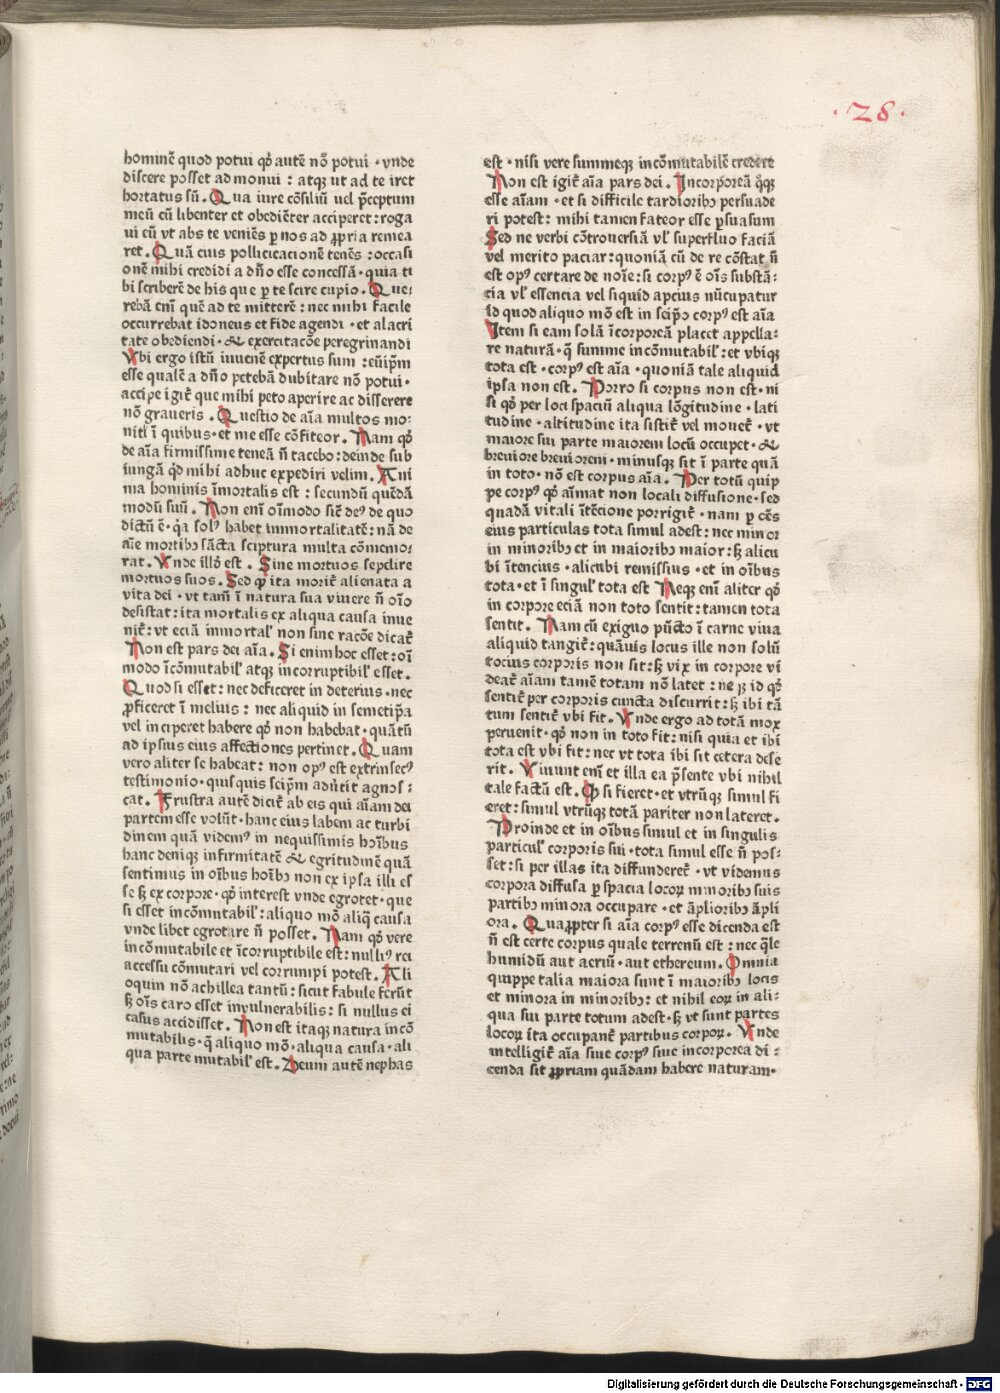 ·28·
hominē quod potui qď autē nō potui · vnde
discere posset ad monui : atqꝫ ut ad te iret
hortatus sū. Qua iure cōsiliū uel p̄ceptum
meū cū libenter et obediēter acciperet : roga
ui cū vt abs te veniēs ꝑ nos ad ꝓpria remea
ret. Quā eius pollicitacionē tenēs : occasi
onē mihi credidi a dn̄o esse concessā · quia ti
bi scriberē de his que ꝑ te scire cupio. Que⸗
rebā eni quē ad te mitterē : nec mihi facile
occurrebat idoneus et fide agendi · et alacri
tate obediendi · & exercitacōe peregrinandi
Vbi ergo istū iuuenē expertus sum : eūip̄m
esse qualē a dn̄o petebā dubitare nō potui ·
accipe igit̄ que mihi peto aperire ac disserere
nō graueris. Questio de aīa multos mo⸗
nitl ī quibus · et me esse cōfiteor. Nam qď
de aīa firmissime teneā n̄ tacebo : deinde sub
iungā qď mihi adhuc expediri velim. Ani
ma hominis īmortalis est : secundū quēdā
modū suū. Non enī oīmodo sic̄ deꝰ de quo
dictū ē · qa solꝰ habet immortalitatē : nā de
aīe mortibꝫ sācta sciptura multa cōmemo⸗
rat. Vnde illō est. Sine mortuos sepelire
mortuos suos. Sed ꝙ ita morit̄ alienata a
vita dei · vt tam̄ ī natura sua viuere n̄ oīo
desistat : ita mortalis ex aliqua causa inue
nit̄ : vt eciā immortal' non sine racōe dicat̄
Non est pars dei aīa. Si enim hoc esset : oī
modo īcōmutabil' atqꝫ incorruptibil' esset.
Quod si esset : nec deficeret in deterius · nec
ꝓficeret ī melius : nec aliquid in semetip̄a
vel inciperet habere qď non habebat · quātū
ad ipsius eius affectiones pertinet. Quam
vero aliter se habeat : non opꝰ est extrinsecꝰ
testimonio · quisquis seip̄m adūtit agnos⸗
cat. Frustra autē dicit̄ ab eis qui aīam dei
partem esse volūt · hanc eius labem ac turbi
dinem quā videmꝰ in nequissimis hoībus
hanc deniqꝫ infirmitatē & egritudinē quā
sentimus in oībus hoībꝫ non ex ipsa illi es
se sꝫ ex corpore · qď interest vnde egrotet · que
si esset incōmutabil' : aliquo mō aliq̄ causa
vnde libet egrotare n̄ posset. Nam qď vere
incōmutabile et īcorruptibile est : nulliꝰ rei
accessu cōmutari vel corrumpi potest. Ali
oquin nō achillea tantū : sicut fabule ferūt
sꝫ oīs caro esset invulnerabilis : si nullus ei
casus accidisset. Non est itaqꝫ natura incō
mutabilis · q̄ aliquo mō · aliqua causa · ali
qua parte mutabil' est. Deum autē nephas
est · nisi vere summeqꝫ incōmutabilē credere
Non est igit̄ aīa pars dei. Incorporeā q̄qꝫ
esse aīam · et si difficile tardioribꝫ persuade
ri potest : mihi tamen fateor esse ꝑsuasum
Sed ne verbi cōtrouersiā vl' superfluo faciā
vel merito paciar : quoniā cū de re cōstat n̄
est opꝰ certare de noīe : si corpꝰ ē oīs substā⸗
cia vl' essencia vel siquid apcius nūcupatur
id quod aliquo mō est in seip̄o corpꝰ est aīa
Item si eam solā īcorporeā placet appella⸗
re naturā · q̄ summe incōmutabil' : et vbiqꝫ
tota est · corpꝰ est aīa · quoniā tale aliquid
ipsa non est. Porro si corpus non est · ni
si qď per loci spaciū aliqua lōgitudine · lati
tudine · altitudine ita sistit̄ vel mouet̄ · vt
maiore sui parte maiorem locū occupet · &
breuiore breuiorem · minusqꝫ sit ī parte quā
in toto · nō est corpus aīa. Per totū quip
pe corpꝰ qď aīmat non locali diffusione · sed
quadā vitali ītēcione porrigit̄ · nam ꝑ oēs
eius particulas tota simul adest : nec minor
in minoribꝫ et in maioribꝫ maior : sꝫ alicu
bi ītencius · alicubi remissius · et in oībus
tota · et ī singul' tota est Neqꝫ enī aliter qď
in corpore eciā non toto sentit : tamen tota
sentit. Nam cū exiguo pūcto ī carne viua
aliquid tangit̄ : quāuis locus ille non solū
tocius corporis non sit : sꝫ vix in corpore vi
deat̄ aīam tamē totam nō latet : neqꝫ id qď
sentit̄ per corporis cuncta discurrit : sꝫ ibi tā
tum sentit̄ vbi fit. Vnde ergo ad totā mox
peruenit · qď non in toto fit : nisi quia et ibi
tota est vbi fit : nec vt tota ibi sit cetera dese
rit. Viuunt enī et illa ea p̄sente vbi nihil
tale factā est. Qď si fieret · et vtrūqꝫ simul fi
eret : simul vtrūqꝫ totā pariter non lateret.
Proinde et in oībus simul et in singulis
particul' corporis sui · tota simul esse n̄ pos⸗
set : si per illas ita diffunderet̄ · vt videmus
corpora diffusa ꝑ spacia locoꝝ minoribꝫ suis
partibꝫ minora occupare · et āplioribꝫ āpli
ora. Quaꝓpter si aīa corpꝰ esse dicenda est
n̄ est certe corpus quale terrenū est : nec q̄le
humidū aut aeriū · aut ethereum. Omnia
quippe talia maiora sunt ī maioribꝫ locis
et minora in minoribꝫ : et nihil eoꝝ in ali⸗
qua sui parte totum adest · sꝫ vt sunt partes
locoꝝ ita occupant̄ partibus corpoꝝ. Vnde
intelligit̄ aīa siue corpꝰ siue incorporea di⸗
cenda sit ꝓpriam quādam habere naturam ·
Digitalisierung gefördert durch die Deutsche Forschungsgemeinschaft - DFG